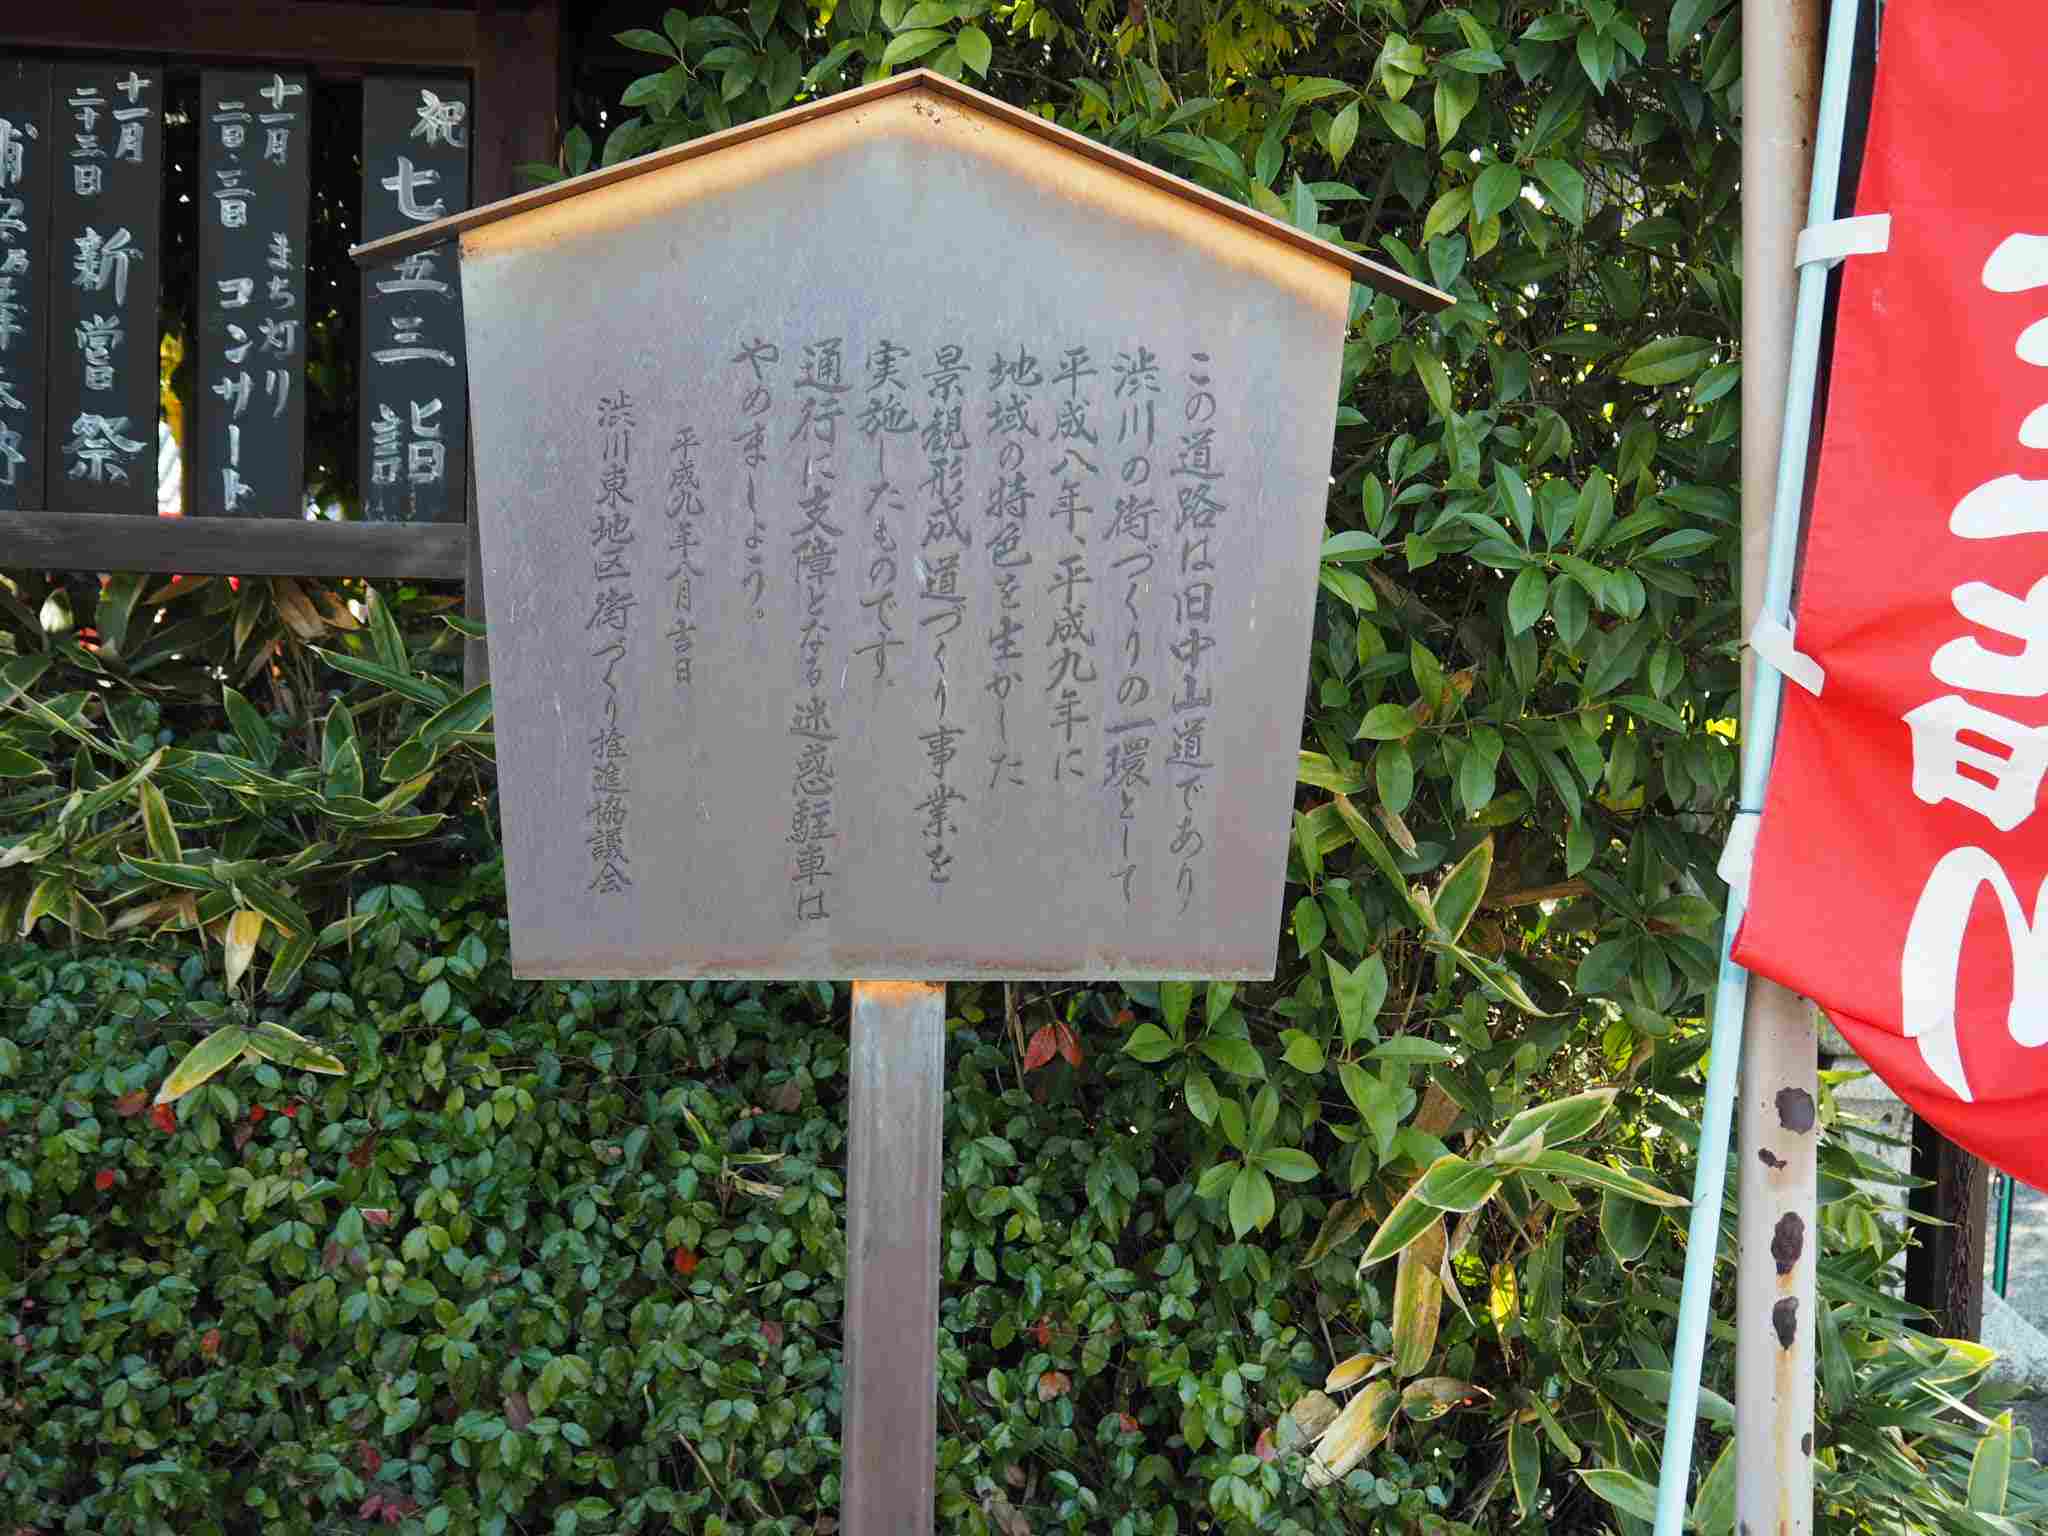 この道路は旧中山道であり
渋川の街づくりの一環として
平成八年、平成九年に
地域の特色を生かした
景観形成道づくり事業を
実施したものです。
通行に支障となる迷惑駐車は
やめましょう。
平成九年八月吉日
渋川東地区街づくり推進協議会
祝
七五三詣
十一月
二日・三日
まち灯り
コンサート
十一月
二十三日
新嘗祭